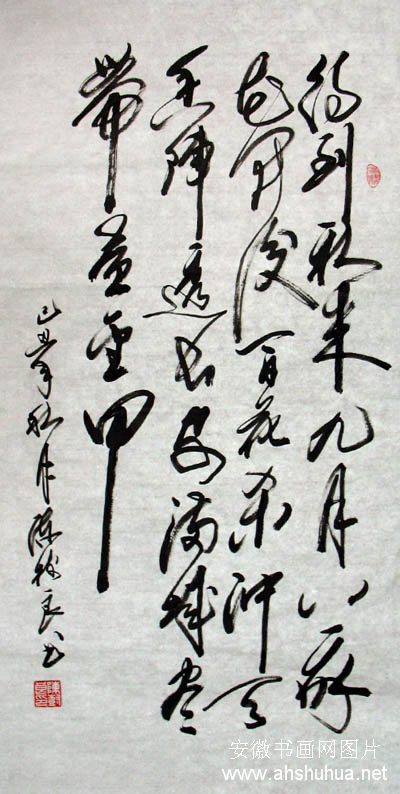 待到秋来九月八我
花開後百花杀沖天
香陣透長安満城尽
帶黄金甲
己丑年秋月陈良书
安徽书画网图片
www.ahshuhua.net